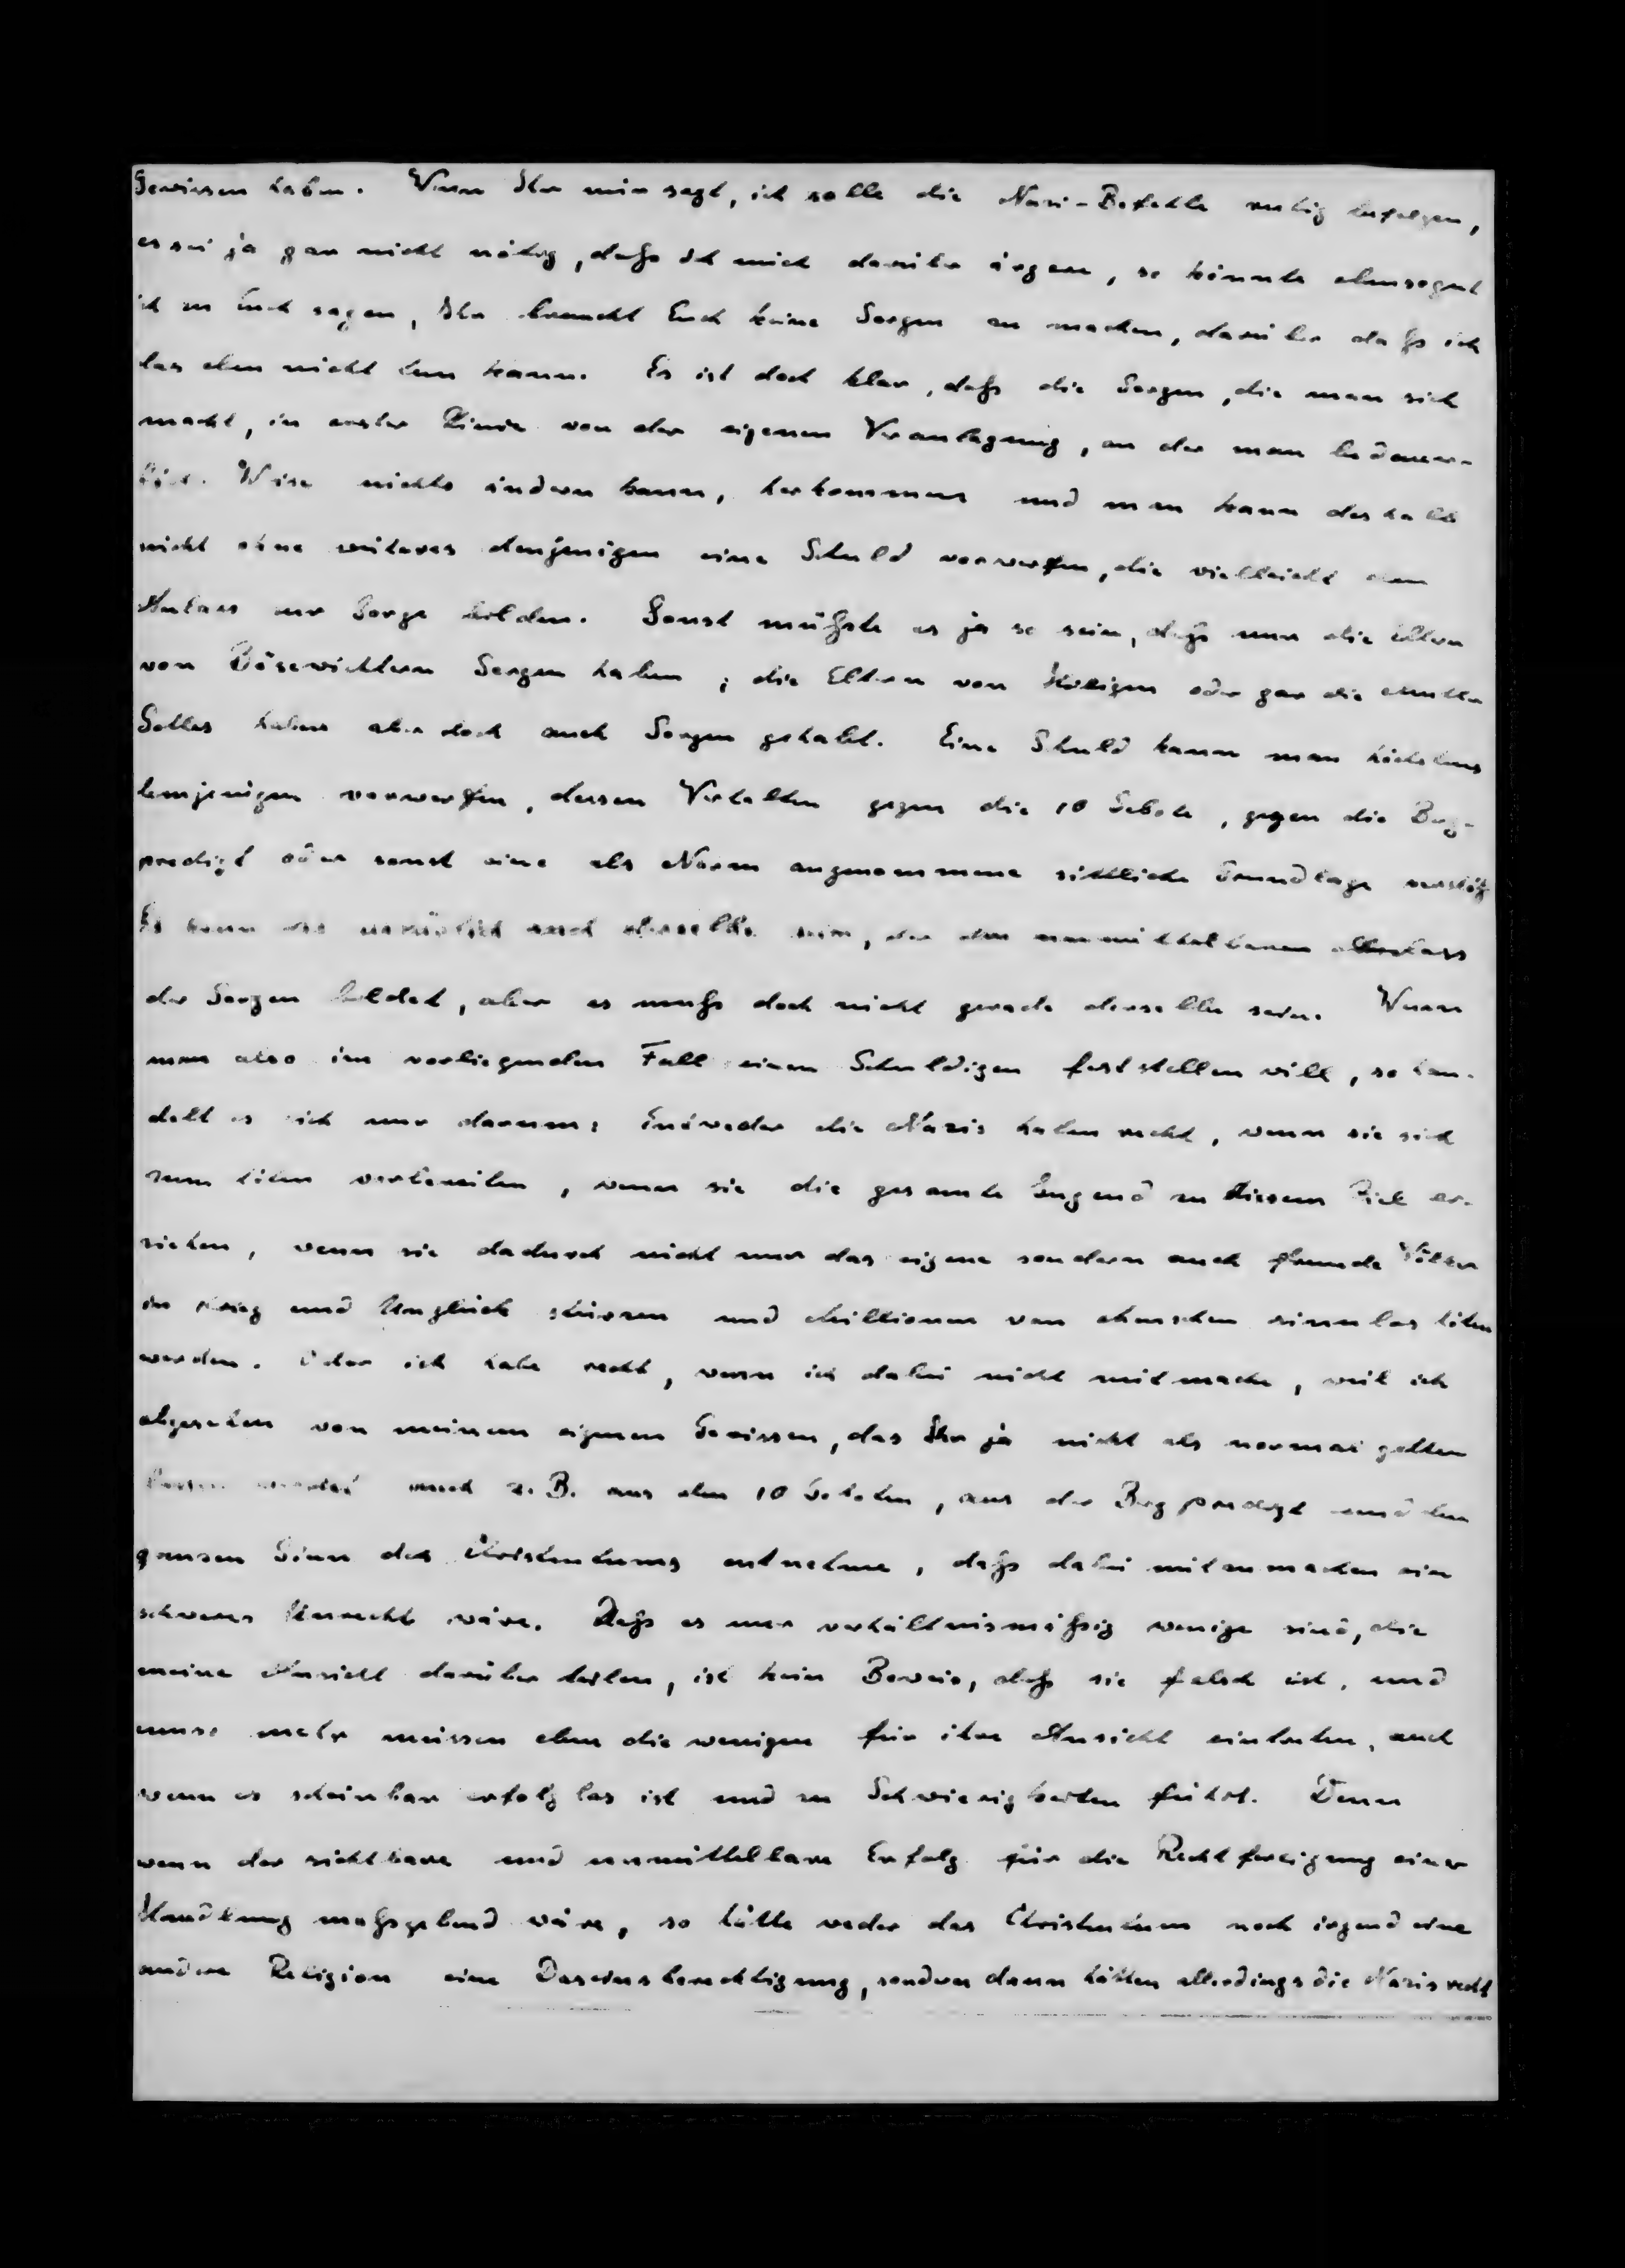 Gewissen haben. Wenn Ihr mir sagt, ich solle die Nazi-Befehle ruhig befolgen,
es sei ja gar nicht nötig, daß ich mich darüber ärgere, so könnte ebensogut
ich zu Euch sagen, Ihr braucht Euch keine Sorgen zu machen, darüber daß ich
das eben nicht tun kann. Es ist doch klar, daß die Sorgen, die man sich
macht, in erster Linie von der eigenen Veranlagung, an der man bedauer-
licher Weise nichts ändern kann, herkommen und man kann deshalb
nicht ohne weiteres denjenigen eine Schuld vorwerfen, die vielleicht den
Anlass zur Sorge bilden. Sonst müßte es ja so sein, daß nur die Eltern
von Bösewichtern Sorgen haben; die Eltern von Heiligen oder gar die Mutter
Gottes haben aber doch auch Sorgen gehabt. Eine Schuld kann man höchstens
demjenigen vorwerfen, dessen Verhalten gegen die 10 Gebote, gegen die Berg-
predigt oder sonst eine als Norm angenommene sittliche Grundlage verstößt
Es kann das natürlich auch derselbe sein, der den unmittelbaren Anlass
der Sorgen bildet, aber es muß doch nicht gerade derselbe sein. Wenn
man also im vorliegenden Fall einen Schuldigen feststellen will, so han-
delt es sich nur darum: Entweder die Nazis haben recht, wenn sie sich
zum töten vorbereiten, wenn sie die gesamte Jugend zu diesem Ziel er-
ziehen, wenn sie dadurch nicht nur das eigene sondern auch fremde Völker
in Krieg und Unglück stürzen und Millionen von Menschen sinnlos töten
werden. Oder ich habe recht, wenn ich dabei nicht mitmache, weil ich
abgesehen von meinem eigenen Gewissen, das Ihr ja nicht als normal gelten
lassen werdet auch z. B. aus den 10 Geboten, aus der Bergpredigt und dem
ganzen Sinn des Christentums entnehme, daß dabei mitzumachen ein
schweres Unrecht wäre. Daß es nur verhältnismäßig wenige sind, die
meine Ansicht darüber teilen, ist kein Beweis, daß sie falsch ist, und
umso mehr müssen eben die wenigen für ihre Ansicht eintreten, auch
wenn es scheinbar erfolglos ist und zu Schwierigkeiten führt. Denn
wenn der sichtbare und unmittelbare Erfolg für die Rechtfertigung einer
Handlung maßgebend wäre, so hätte weder das Christentum noch irgend eine
andere Religion eine Daseinsberechtigung, sondern dann hätten allerdings die Nazis recht